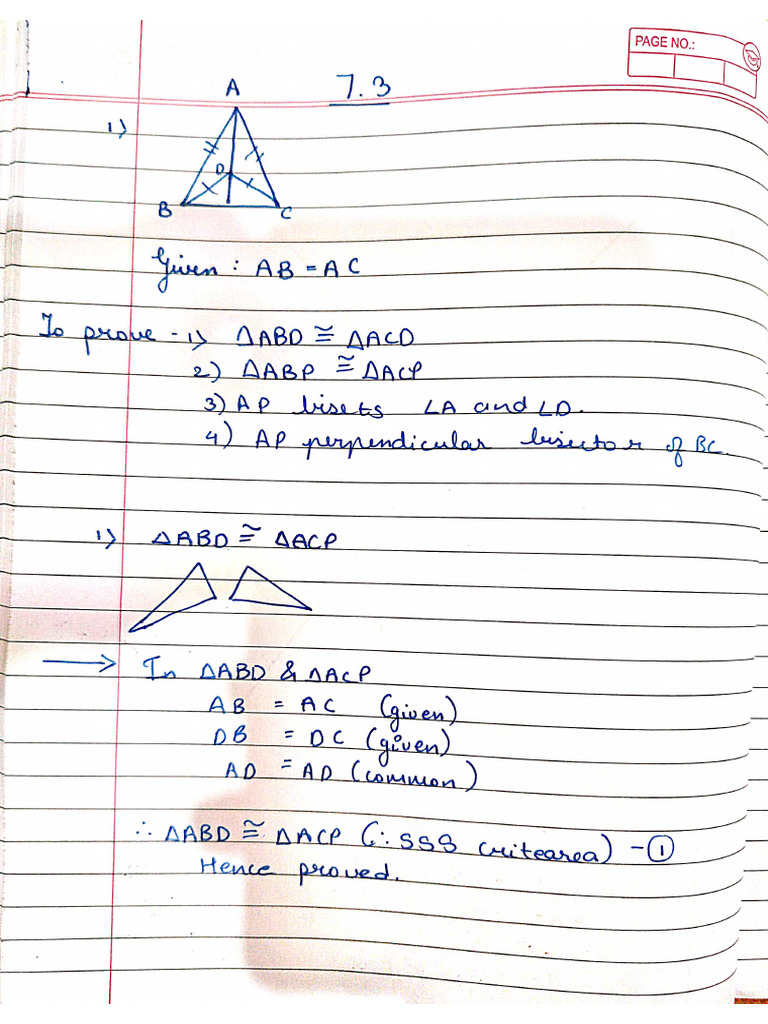 PAGE NO.:
7.3
1)
A
D
B
C
Given : AB = AC
To prove - 1) ΔABD ≅ ΔACD
2) ΔABP ≅ ΔACP
3) AP bisets ∠A and ∠D.
4) AP perpendicular bisector of BC.
1) ΔABD ≅ ΔACP
→ In ΔABD & ΔACP
AB = AC (given)
DB = DC (given)
AD = AD (common)
∴ ΔABD ≅ ΔACP (∵ SSS critearea) - ①
Hence proved.